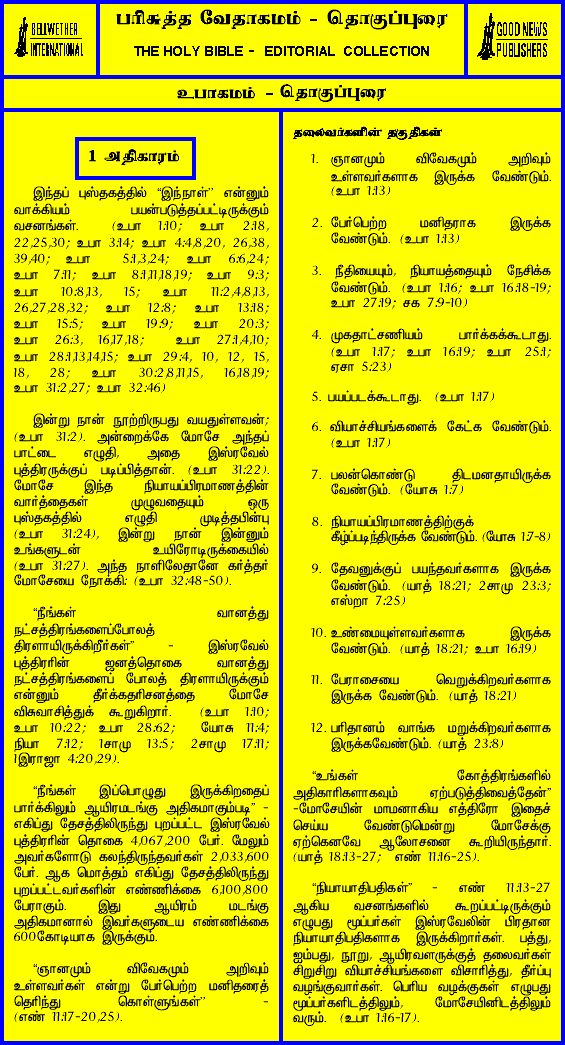 BELLWETHER
INTERNATIONAL
பரிசுத்த வேதாகமம் - தொகுப்புரை
THE HOLY BIBLE - EDITORIAL COLLECTION
GOOD NEWS
PUBLISHERS
உபாகமம் - தொகுப்புரை
1 அதிகாரம்
இந்தப் புஸ்தகத்தில் “இந்நாள்” என்னும்
வாக்கியம் பயன்படுத்தப்பட்டிருக்கும்
வசனங்கள். (உபா 1:10; உபா 2:18,
22,25,30; உபா 3:14; உபா 4:4,8,20, 26,38,
39,40; உபா 5:1,3,24; உபா 6:6,24;
உபா 7:11; உபா 8:1,11,18,19; உபா 9:3;
உபா 10:8,13, 15; உபா 11:2,4,8,13,
26,27,28,32; உபா 12:8; உபா 13:18;
உபா 15:5; உபா 19:9; உபா 20:3;
உபா 26:3, 16,17,18; உபா 27:1,4,10;
உபா 28:1,13,14,15; உபா 29:4, 10, 12, 15,
18, 28; உபா 30:2,8,11,15, 16,18,19;
உபா 31:2,27; உபா 32:46)
இன்று நான் நூற்றிருபது வயதுள்ளவன்;
(உபா 31:2). அன்றைக்கே மோசே அந்தப்
பாட்டை எழுதி, அதை இஸ்ரவேல்
புத்திரருக்குப் படிப்பித்தான். (உபா 31:22).
மோசே இந்த நியாயப்பிரமாணத்தின்
வார்த்தைகள் முழுவதையும் ஒரு
புஸ்தகத்தில் எழுதி முடித்தபின்பு
(உபா 31:24), இன்று நான் இன்னும்
உங்களுடன் உயிரோடிருக்கையில்
(உபா 31:27). அந்த நாளிலேதானே கர்த்தர்
மோசேயை நோக்கி: (உபா 32:48-50).
“நீங்கள் வானத்து
நட்சத்திரங்களைப்போலத்
திரளாயிருக்கிறீர்கள்” - இஸ்ரவேல்
புத்திரரின் ஜனத்தொகை வானத்து
நட்சத்திரங்களைப் போலத் திரளாயிருக்கும்
என்னும் தீர்க்கதரிசனத்தை மோசே
விசுவாசித்துக் கூறுகிறார். (உபா 1:10;
உபா 10:22; உபா 28:62; யோசு 11:4;
நியா 7:12; 1சாமு 13:5; 2சாமு 17:11;
1இராஜா 4:20,29).
“நீங்கள் இப்பொழுது இருக்கிறதைப்
பார்க்கிலும் ஆயிரமடங்கு அதிகமாகும்படி” -
எகிப்து தேசத்திலிருந்து புறப்பட்ட இஸ்ரவேல்
புத்திரரின் தொகை 4,067,200 பேர். மேலும்
அவர்களோடு கலந்திருந்தவர்கள் 2,033,600
பேர். ஆக மொத்தம் எகிப்து தேசத்திலிருந்து
புறப்பட்டவர்களின் எண்ணிக்கை 6,100,800
பேராகும். இது ஆயிரம் மடங்கு
அதிகமானால் இவர்களுடைய எண்ணிக்கை
600கோடியாக இருக்கும்.
“ஞானமும் விவேகமும் அறிவும்
உள்ளவர்கள் என்று பேர்பெற்ற மனிதரைத்
தெரிந்து கொள்ளுங்கள்” -
(எண் 11:17-20,25).
தலைவர்களின் தகுதிகள்
1. ஞானமும் விவேகமும் அறிவும்
உள்ளவர்களாக இருக்க வேண்டும்.
(உபா 1:13)
2. பேர்பெற்ற மனிதராக இருக்க
வேண்டும். (உபா 1:13)
3. நீதியையும், நியாயத்தையும் நேசிக்க
வேண்டும். (உபா 1:16; உபா 16:18-19;
உபா 27:19; சக 7:9-10)
4. முகதாட்சணியம் பார்க்கக்கூடாது.
(உபா 1:17; உபா 16:19; உபா 25:1;
ஏசா 5:23)
5. பயப்படக்கூடாது. (உபா 1:17)
6. வியாச்சியங்களைக் கேட்க வேண்டும்.
(உபா 1:17)
7. பலன்கொண்டு திடமனதாயிருக்க
வேண்டும். (யோசு 1:7)
8. நியாயப்பிரமாணத்திற்குக்
கீழ்ப்படிந்திருக்க வேண்டும். (யோசு 1:7-8)
9. தேவனுக்குப் பயந்தவர்களாக இருக்க
வேண்டும். (யாத் 18:21; 2சாமு 23:3;
எஸ்றா 7:25)
10. உண்மையுள்ளவர்களாக இருக்க
வேண்டும். (யாத் 18:21; உபா 16:19)
11. பேராசையை வெறுக்கிறவர்களாக
இருக்க வேண்டும். (யாத் 18:21)
12. பரிதானம் வாங்க மறுக்கிறவர்களாக
இருக்கவேண்டும். (யாத் 23:8)
“உங்கள் கோத்திரங்களில்
அதிகாரிகளாகவும் ஏற்படுத்திவைத்தேன்”
-மோசேயின் மாமனாகிய எத்திரோ இதைச்
செய்ய வேண்டுமென்று மோசேக்கு
ஏற்கெனவே ஆலோசனை கூறியிருந்தார்.
(யாத் 18:13-27; எண் 11:16-25).
“நியாயாதிபதிகள்” - எண் 11:13-27
ஆகிய வசனங்களில் கூறப்பட்டிருக்கும்
எழுபது மூப்பர்கள் இஸ்ரவேலின் பிரதான
நியாயாதிபதிகளாக இருக்கிறார்கள். பத்து,
ஐம்பது, நூறு, ஆயிரவளருக்குத் தலைவர்கள்
சிறுசிறு வியாச்சியங்களை விசாரித்து, தீர்ப்பு
வழங்குவார்கள். பெரிய வழக்குகள் எழுபது
மூப்பர்களிடத்திலும், மோசேயினிடத்திலும்
வரும். (உபா 1:16-17).